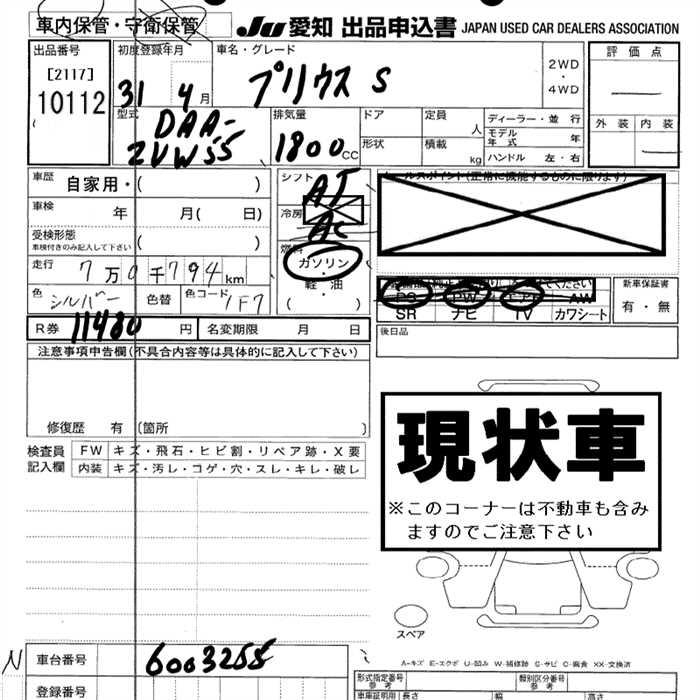 車内保管・守衛保管
JU 愛知 出品申込書 JAPAN USED CAR DEALERS ASSOCIATION
出品番号
[2117]
10112
初度登録年月
31 4 月
車名・グレード
プリウス S
2WD
・
4WD
評価点
外装 内装
型式
DAA-
ZVW55
排気量
1800 CC
ドア
定員
人
形状
積載
kg
ディーラー・並行
モデル年式 年
ハンドル 左・右
車歴 自家用・( )
車検 年 月( 日)
受検形態
車検付きのみ記入して下さい ( )
走行 7万0千794km
色 シルバー 色替 色コード 1F7
R券 11480 円 名変期限 月 日
シフト AT
冷房 AC
燃料
ガソリン
・
軽油
( )
セールスポイント(正常に機能するものに限ります)
PS PW エアB AW
SR ナビ TV カワシート
新車保証書
有・無
後日品
注意事項申告欄(不具合内容等は具体的に記入して下さい)
修復歴 有 〔箇所 〕
検査員
記入欄
FW キズ・飛石・ヒビ割・リペア跡・X要
内装 キズ・汚レ・コゲ・穴・スレ・キレ・破レ
現状車
※このコーナーは不動車も含み
ますのでご注意下さい
スペア
A-キズ E-エクボ U-凹み W-補修跡 S-サビ C-腐食 XX-交換済
N 車台番号 6003255
登録番号
形式指定番号
参考
類別区分番号
参考
車証明用 長さ 幅 高さ